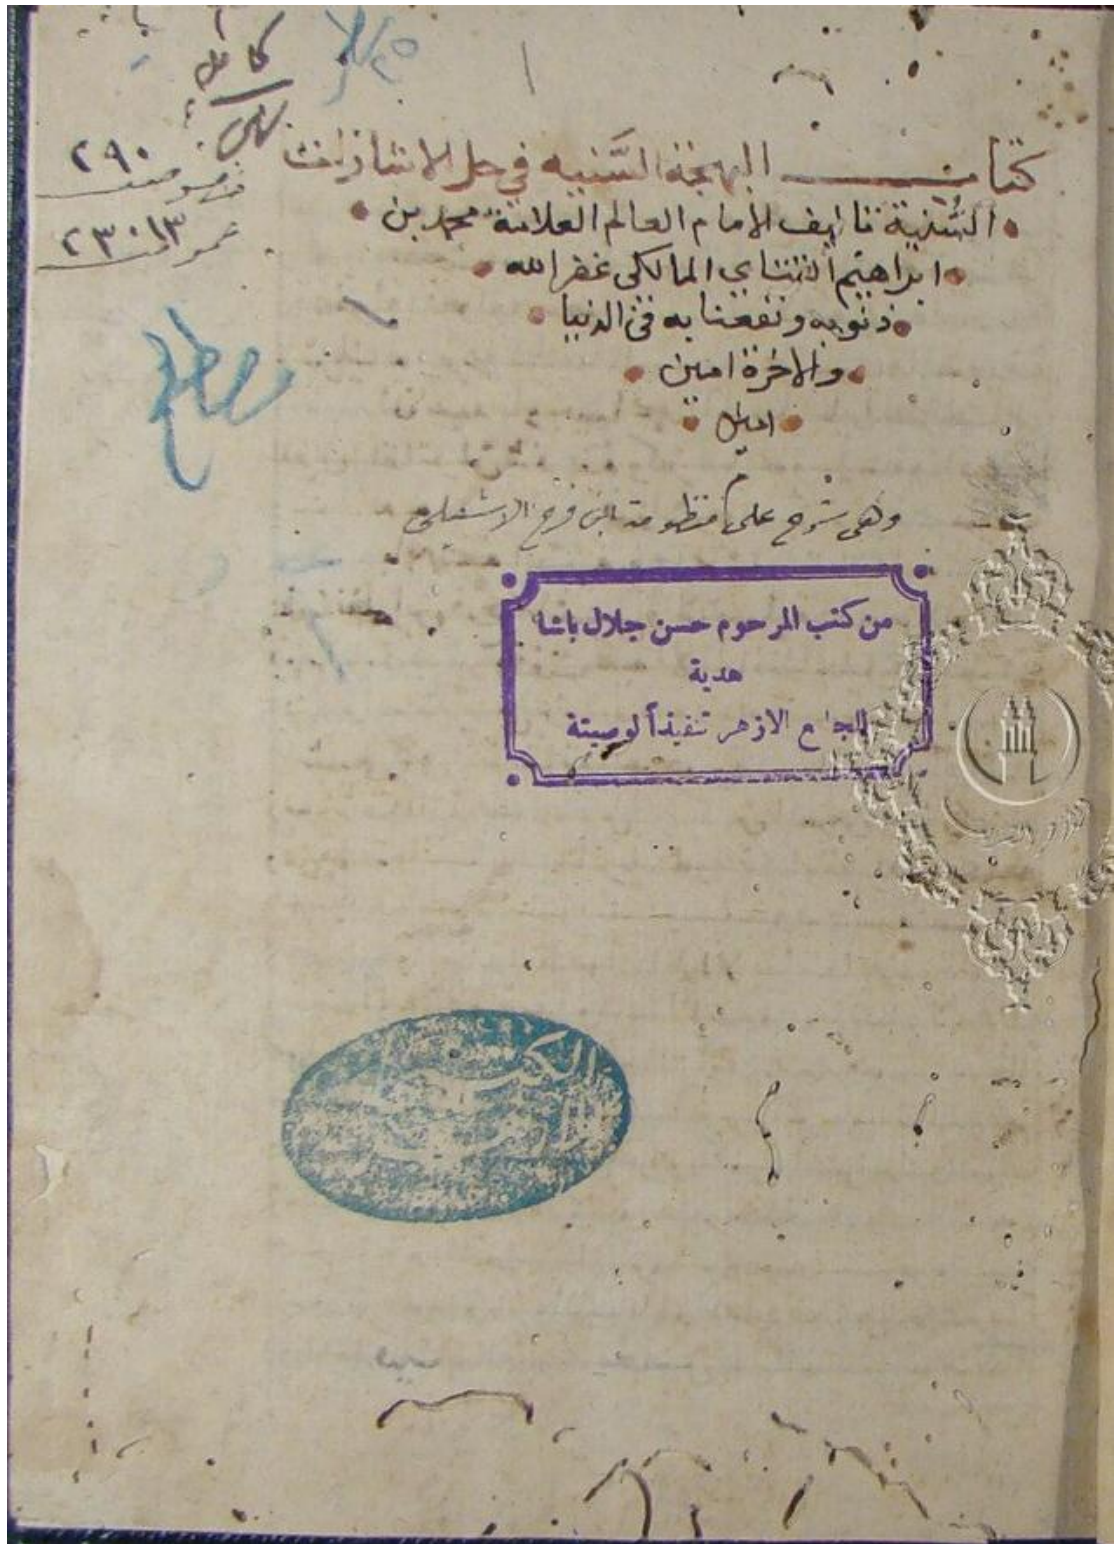 كامل
٢٩٠
خصوصية
٢٣٠١٣
عمومية
كتاب البهجة السَّنية في حل الاشارات
السُّنية تاليف الامام العالم العلامة محمد بن
ابراهيم التتاي المالكى غفر الله
ذنوبه ونفعنا به في الدنيا
والاخرة امين
امين
وهى شرح على منظومة ابن فرح الاشبيلى
من كتب المرحوم حسن جلال باشا
هدية
للجامع الازهر تنفيذاً لوصيتة